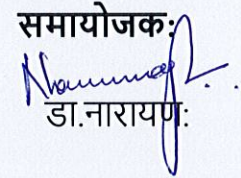 समायोजक:
डा.नारायण: